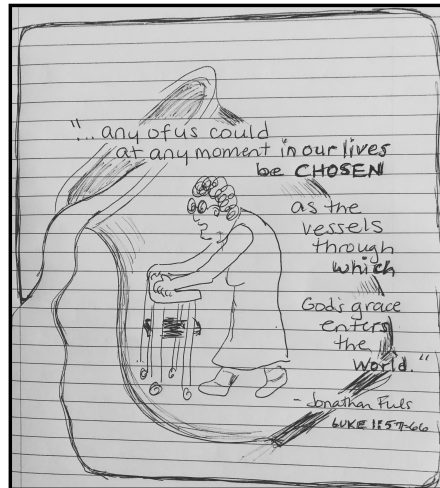 "... any of us could
at any moment in our lives
be CHOSEN
as the
vessels
through
which
God's grace
enters
the
World."
- Jonathan Fuls
LUKE 1:57-66